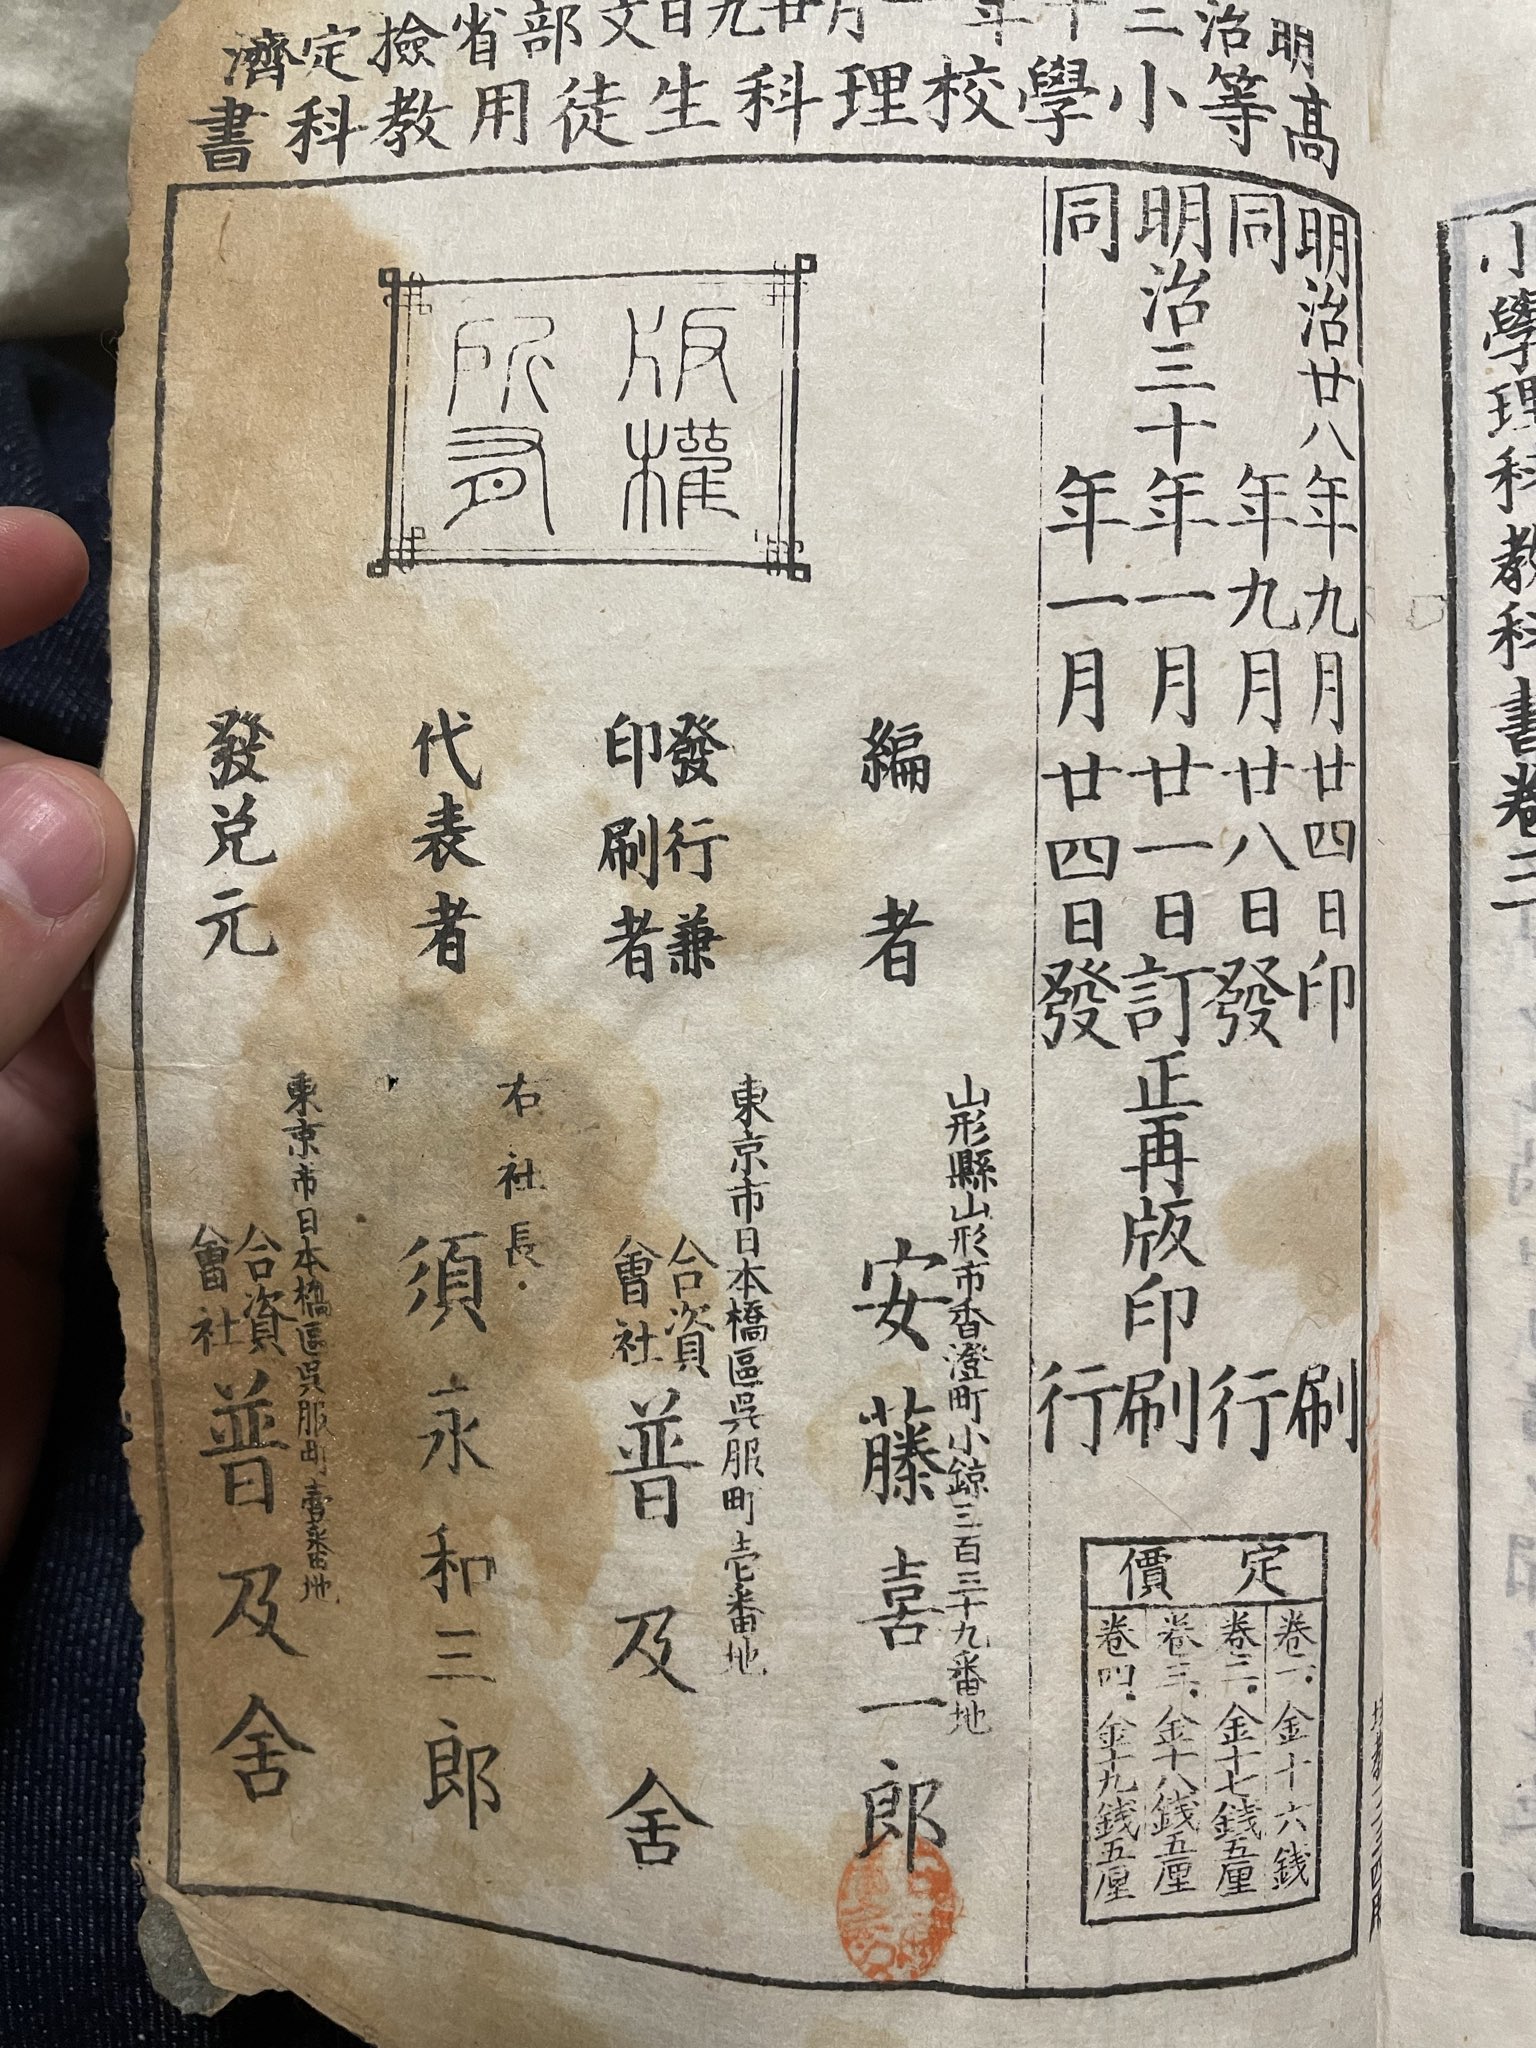 明治三十年一月廿九日文部省檢定濟
高等小學校理科生徒用教科書
明治廿八年九月廿四日印刷
同年九月廿八日發行
明治三十年一月廿一日訂正再版印刷
同年一月廿四日發行
定價
卷一金十六錢
卷二金十七錢五厘
卷三金十八錢五厘
卷四金十九錢五厘
版權所有
編者
山形縣山形市香澄町小鍄三百三十九番地
安藤喜一郎
發行兼印刷者
東京市日本橋區呉服町壱番地
合資會社普及舍
代表者
右社長
須永和三郎
發兌元
東京市日本橋區呉服町壹番地
合資會社普及舍
小學理科教科書卷三